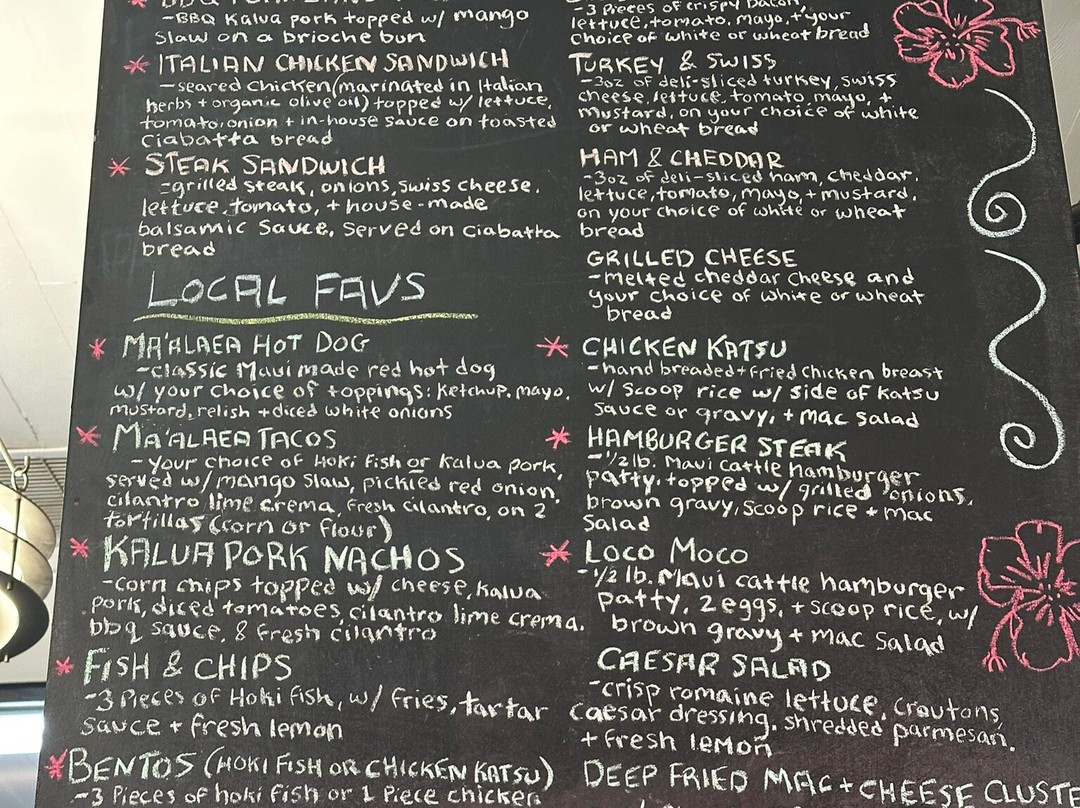 -BBQ Kalua pork topped w/ mango
slaw on a brioche bun
* ITALIAN CHICKEN SANDWICH
-seared chicken (marinated in Italian
herbs + organic olive oil) topped w/ lettuce,
tomato, onion + in-house sauce on toasted
ciabatta bread
* STEAK SANDWICH
-grilled steak, onions, swiss cheese,
lettuce, tomato, + house-made
balsamic sauce. Served on ciabatta
bread
LOCAL FAVS
* MA'ALAEA HOT DOG
-classic Maui made red hot dog
w/ your choice of toppings: ketchup, mayo,
mustard, relish + diced white onions
* MA'ALAEA TACOS
-your choice of Hoki fish or Kalua pork,
served w/ mango slaw, pickled red onion,
cilantro lime crema, fresh cilantro, on 2
tortillas (corn or flour)
* KALUA PORK NACHOS
-corn chips topped w/ cheese, kalua
pork, diced tomatoes, cilantro lime crema,
bbq sauce, & fresh cilantro
* FISH & CHIPS
-3 pieces of Hoki fish, w/ fries, tartar
sauce + fresh lemon
* BENTOS (HOKI FISH OR CHICKEN KATSU)
-3 pieces of hoki fish or 1 piece chicken
-3 pieces of crispy bacon,
lettuce, tomato, mayo, + your
choice of white or wheat bread
TURKEY & SWISS
-3oz of deli-sliced turkey, swiss
cheese, lettuce, tomato, mayo, +
mustard, on your choice of white
or wheat bread
HAM & CHEDDAR
-3oz of deli-sliced ham, cheddar,
lettuce, tomato, mayo, + mustard,
on your choice of white or wheat
bread
GRILLED CHEESE
-melted cheddar cheese and
your choice of white or wheat
bread
* CHICKEN KATSU
-hand breaded + fried chicken breast
w/ scoop rice w/ side of katsu
sauce or gravy, + mac salad
* HAMBURGER STEAK
-1/2 lb. Maui cattle hamburger
patty, topped w/ grilled onions,
brown gravy, scoop rice + mac
salad
* LOCO MOCO
-1/2 lb. Maui cattle hamburger
patty, 2 eggs, + scoop rice, w/
brown gravy + mac salad
CAESAR SALAD
-crisp romaine lettuce, croutons,
caesar dressing, shredded parmesan,
+ fresh lemon
DEEP FRIED MAC + CHEESE CLUSTE